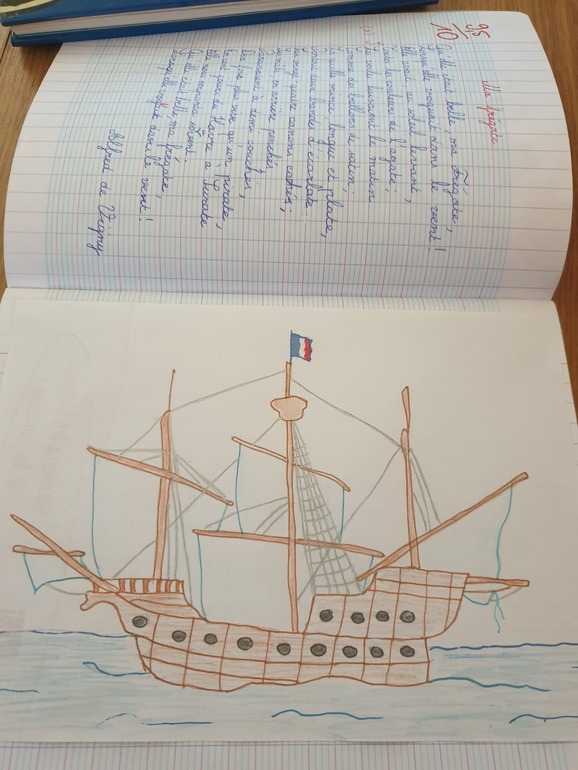 9,5
10
Ma frégate
Qu'elle était belle, ma Frégate,
Lorsqu'elle voguait dans le vent !
Elle avait, au soleil levant,
Toutes les couleurs de l'agate ;
Ses voiles luisaient le matin
Comme des ballons de satin ;
Sa quille mince, longue et plate,
Portait deux bandes d'écarlate
Sur vingt quatre canons cachés ;
Ses mâts en arrière penchés
Paraissaient à demi couchés.
Dix fois plus vive qu'un pirate,
En cent jours du Havre à Surate
Elle nous emporta souvent.
Qu'elle était belle ma frégate,
Lorsqu'elle voguait dans le vent !
Alfred de Vigny